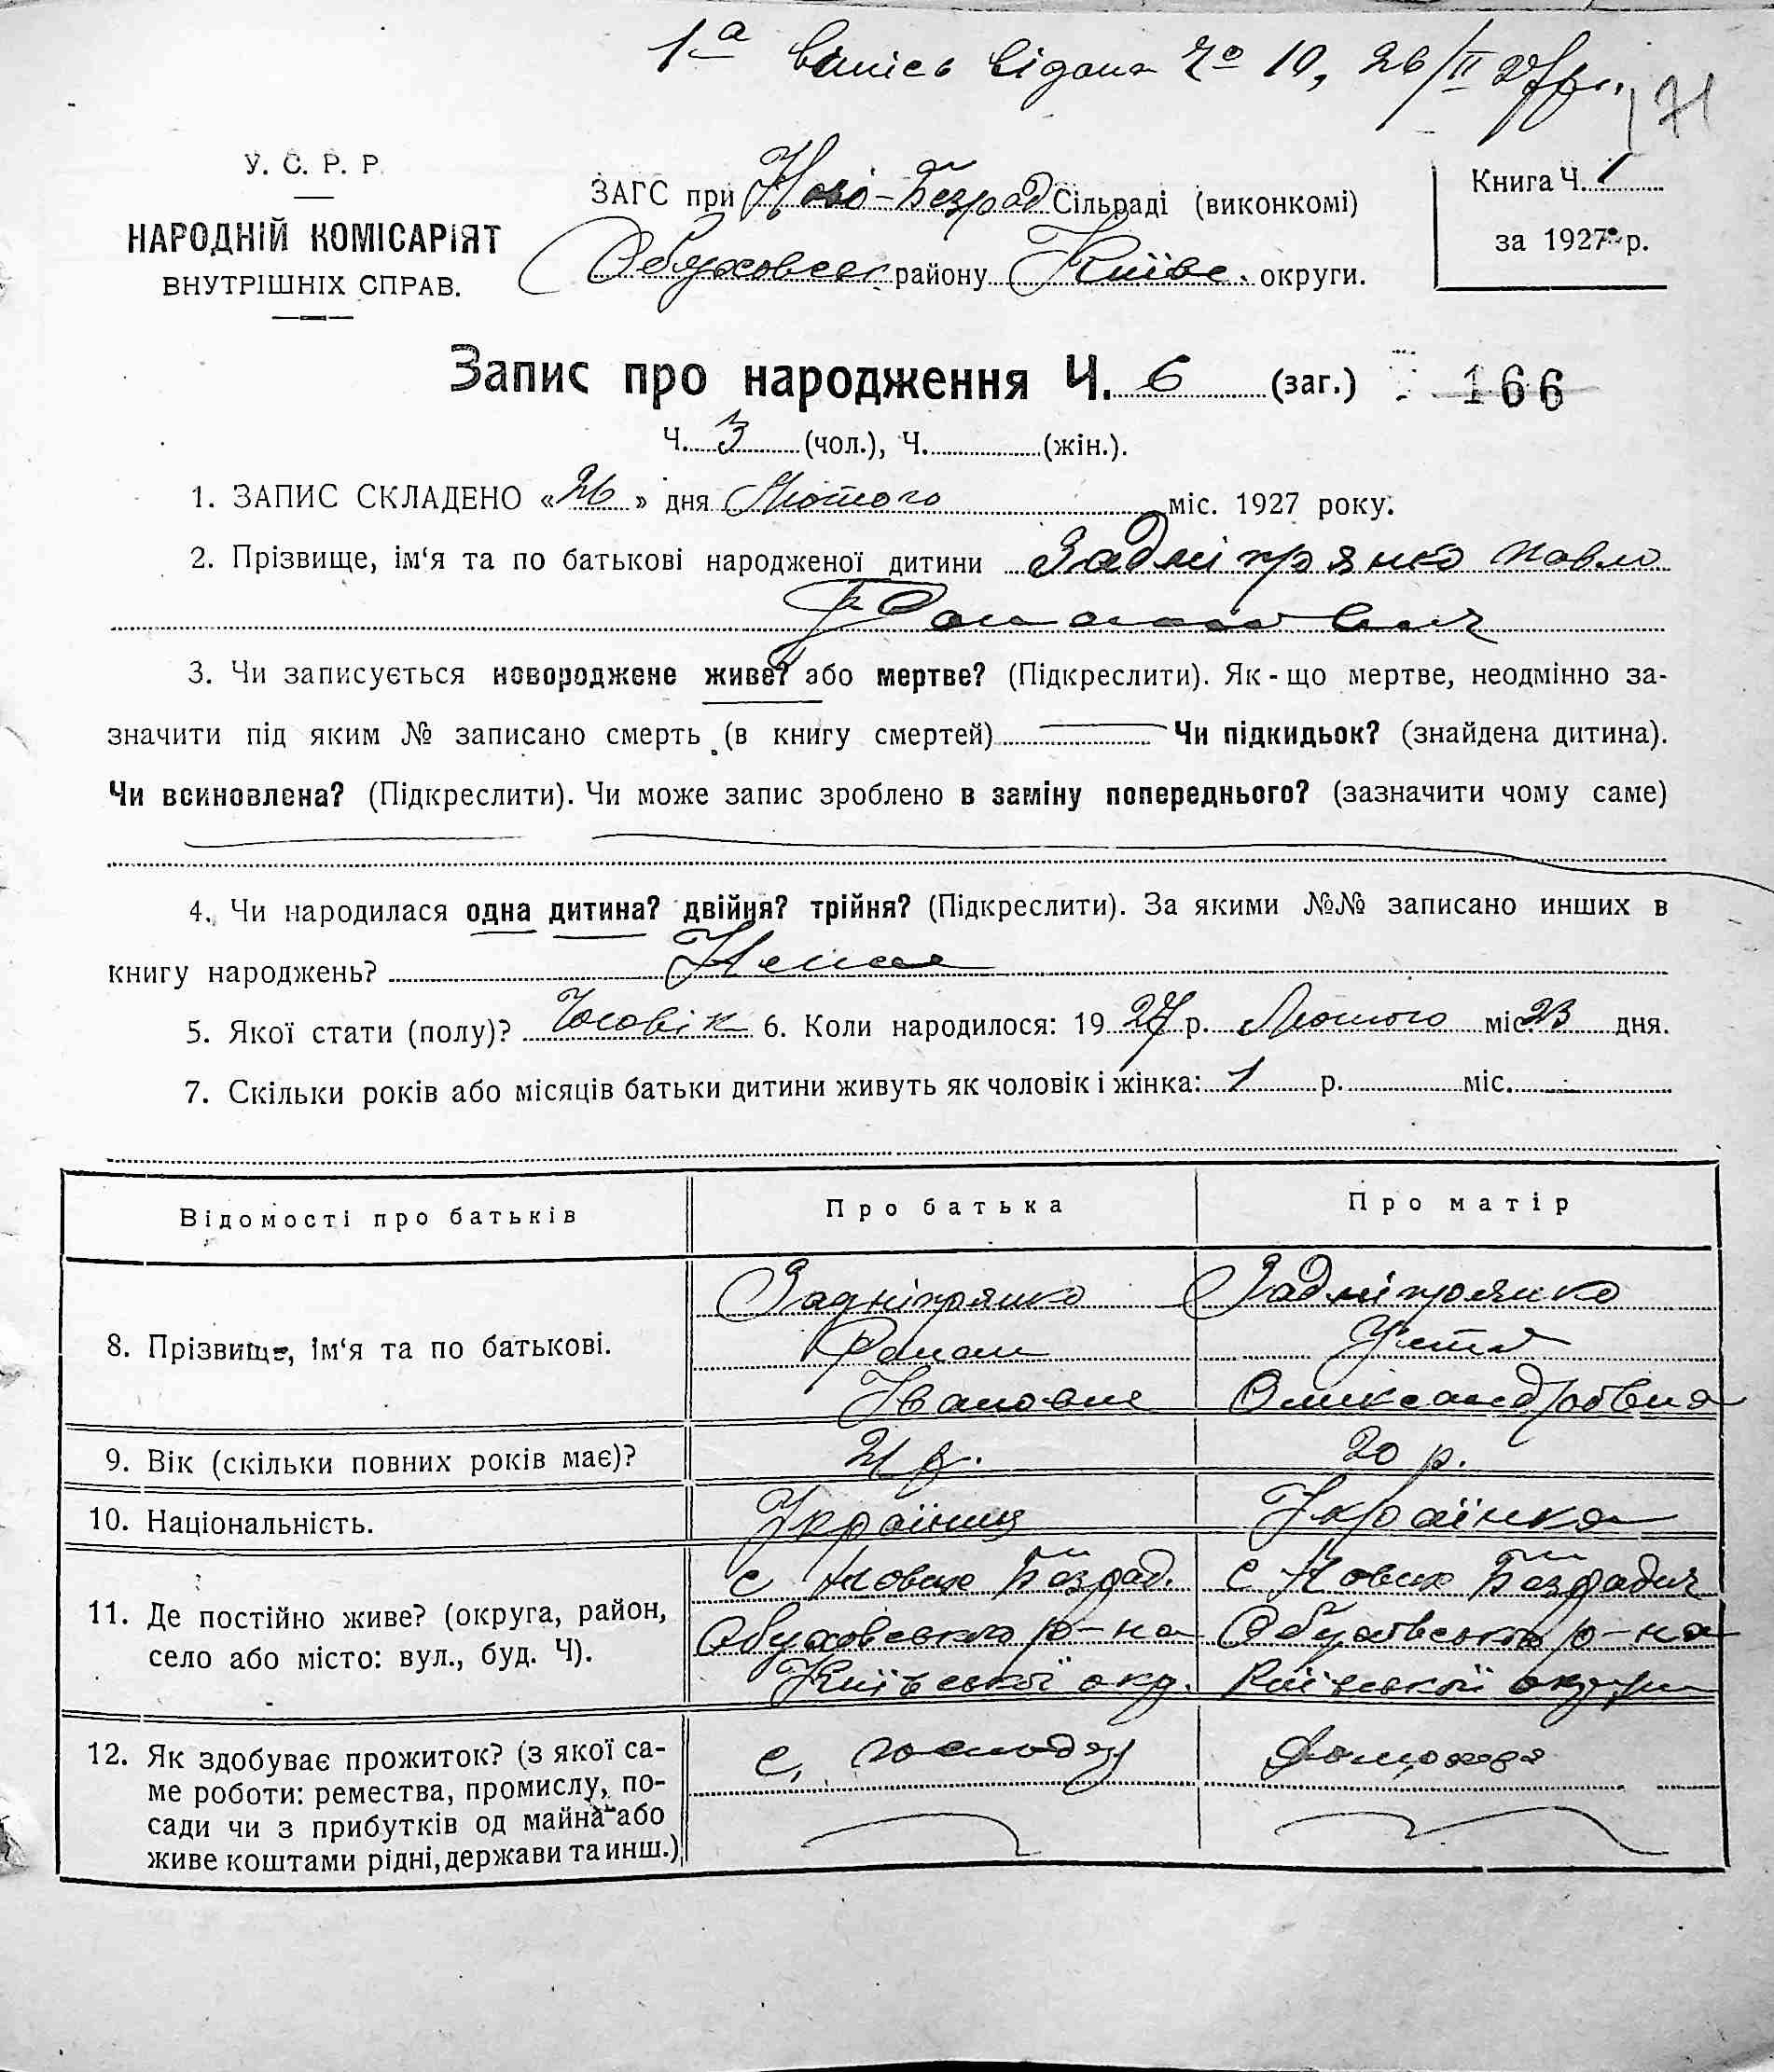 1а випись видана Чо 10, 26/II 27 р.
171
У. С. Р. Р.
НАРОДНІЙ КОМІСАРІЯТ
ВНУТРІШНІХ СПРАВ.
ЗАГС при Ново-Безрад Сільраді (виконкомі)
Обуховськ району Київс. округи.
Книга Ч. 1
за 1927 р.
Запис про народження Ч. 6 (заг.) 166
Ч. 3 (чол.), Ч. (жін.).
1. ЗАПИС СКЛАДЕНО «26» дня Лютого міс. 1927 року.
2. Прізвище, ім‘я та по батькові народженої дитини Задніпрянко Павло
Романович
3. Чи записується новороджене живе? або мертве? (Підкреслити). Як-що мертве, неодмінно за-
значити під яким № записано смерть (в книгу смертей) Чи підкидьок? (знайдена дитина).
Чи всиновлена? (Підкреслити). Чи може запис зроблено в заміну попереднього? (зазначити чому саме)
4. Чи народилася одна дитина? двійня? трійня? (Підкреслити). За якими №№ записано инших в
книгу народжень? Нема
5. Якої стати (полу)? Чоловік 6. Коли народилося: 1927 р. Лютого міс. 23 дня.
7. Скільки років або місяців батьки дитини живуть як чоловік і жінка: 1 р. міс.
Відомості про батьків Про батька Про матір
8. Прізвище, ім‘я та по батькові.
Задніпрянко
Роман
Іванович
Задніпрянко
Устя
Олександровна
9. Вік (скільки повних років має)? 21 р. 20 р.
10. Національність. Українец Українка
11. Де постійно живе? (округа, район,
село або місто: вул., буд. Ч).
с Нових Безрад.
Обуховського р-на
Київської окр.
с Нових Безрадич
Обухівського р-на
Київської округи
12. Як здобуває прожиток? (з якої са-
ме роботи: ремества, промислу, по-
сади чи з прибутків од майна або
живе коштами рідні, держави та инш.)
с. господар